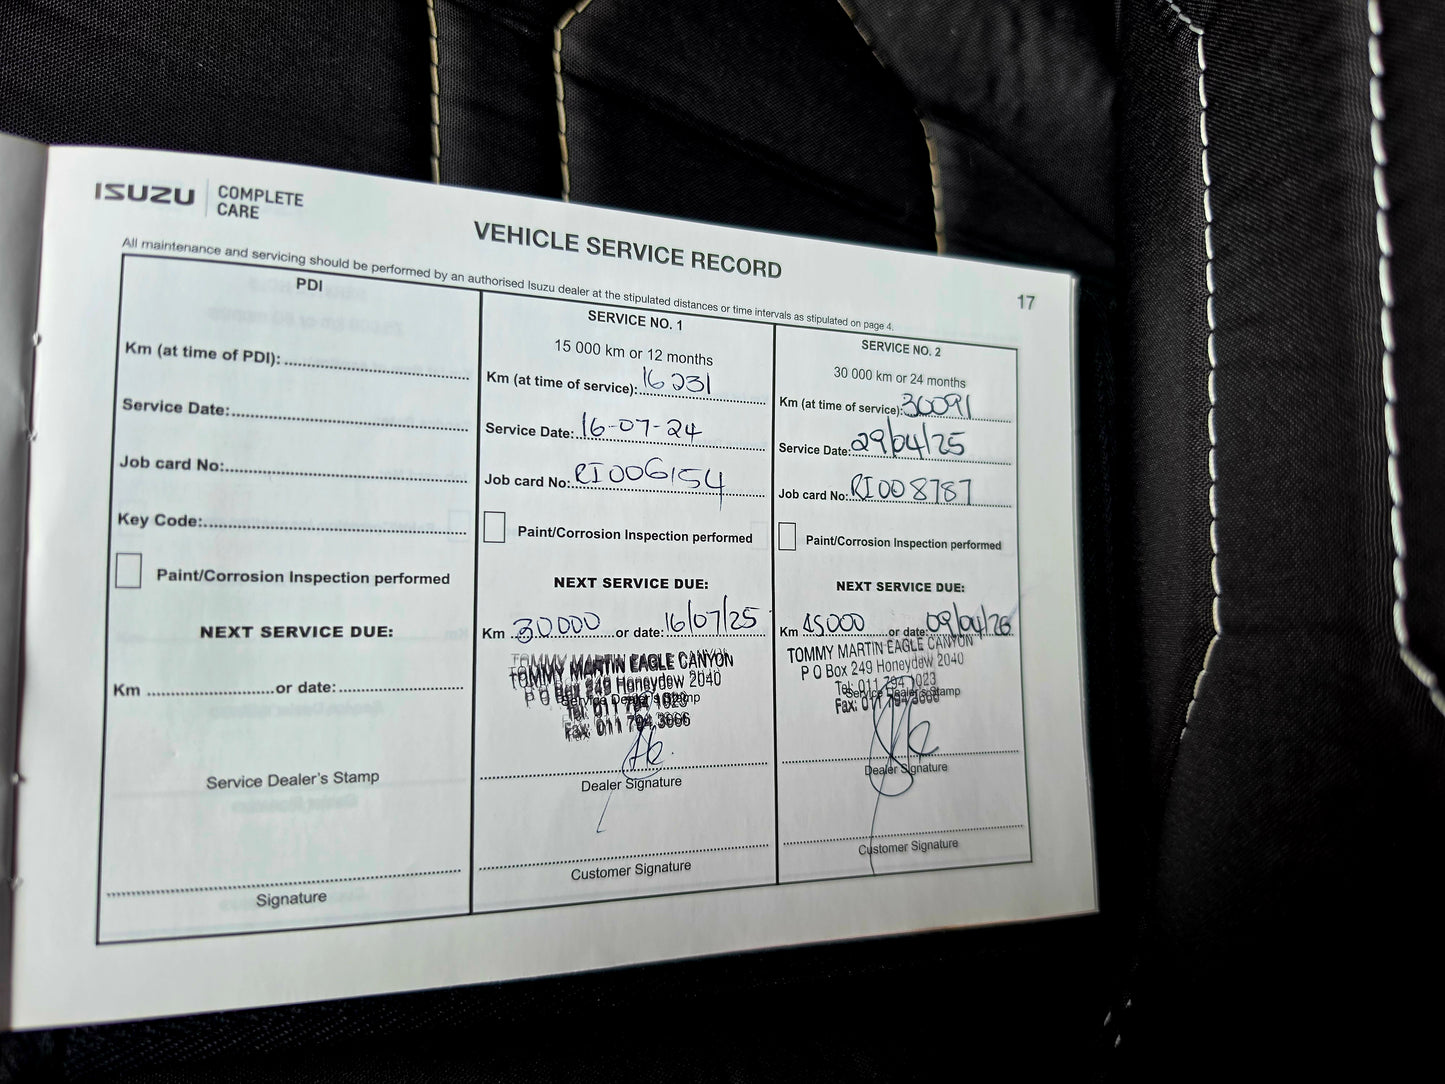 ISUZU COMPLETE CARE
VEHICLE SERVICE RECORD
All maintenance and servicing should be performed by an authorised Isuzu dealer at the stipulated distances or time intervals as stipulated on page 4.
17
PDI
Km (at time of PDI):
Service Date:
Job card No:
Key Code:
Paint/Corrosion Inspection performed
NEXT SERVICE DUE:
Km or date:
Service Dealer's Stamp
Signature
SERVICE NO. 1
15 000 km or 12 months
Km (at time of service): 16231
Service Date: 16-07-24
Job card No: RI006154
Paint/Corrosion Inspection performed
NEXT SERVICE DUE:
Km 30000 or date: 16/07/25
TOMMY MARTIN EAGLE CANYON
P O Box 249 Honeydew 2040
Service Dealer's Stamp
Tel: 011 794 1023
Fax: 011 794 3666
Dealer Signature
Customer Signature
SERVICE NO. 2
30 000 km or 24 months
Km (at time of service): 30091
Service Date: 29/04/25
Job card No: RI008787
Paint/Corrosion Inspection performed
NEXT SERVICE DUE:
Km 45000 or date: 09/04/26
TOMMY MARTIN EAGLE CANYON
P O Box 249 Honeydew 2040
Tel: 011 794 1023
Service Dealer's Stamp
Fax: 011 794 3666
Dealer Signature
Customer Signature